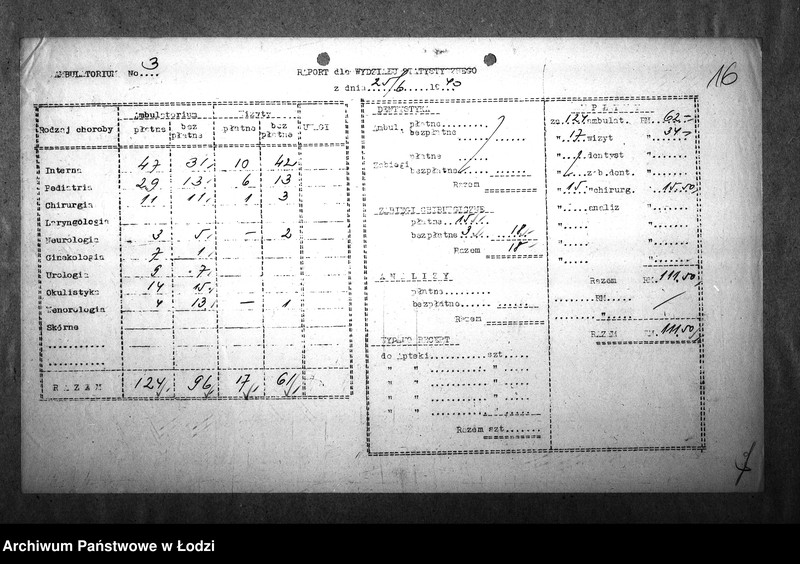 16
AMBULATORIUM No 3
RAPORT dla WYDZIAŁU STATYSTYCZNEGO
z dnia 25/6 1940
Rodzaj choroby
Ambulatorium
płatne
bez płatne
Wizyty
płatne
bez płatne
Interna 47 31 10 42
Pediatria 29 13 6 13
Chirurgia 11 11 1 3
Laryngologia
Neurologia 3 5 — 2
Ginekologia 7 1
Urologia 9 7
Okulistyka 14 15
Wenerologia 4 13 — 1
Skórne
RAZEM 124 96 17 61
DENTYSTYKA
Ambul. płatne
bezpłatne
Zabiegi płatne
bezpłatne
Razem
ZABIEGI CHIRURGICZNE
płatne 15
bezpłatne 3 18
Razem 18
ANALIZY
płatne
bezpłatne
Razem
WYDANO RECEPT
do Apteki szt.
" " "
" " "
" " "
Razem szt.
WPŁYWY
za 124 ambulat. RM. 62-
" 17 wizyt " 34-
" dentyst "
" zab.dont. "
" 15 chirurg. " 15.50
" analiz "
" "
" "
" "
Razem RM. 111.50
RM.
"
RAZEM RM. 111.50
Archiwum Państwowe w Łodzi